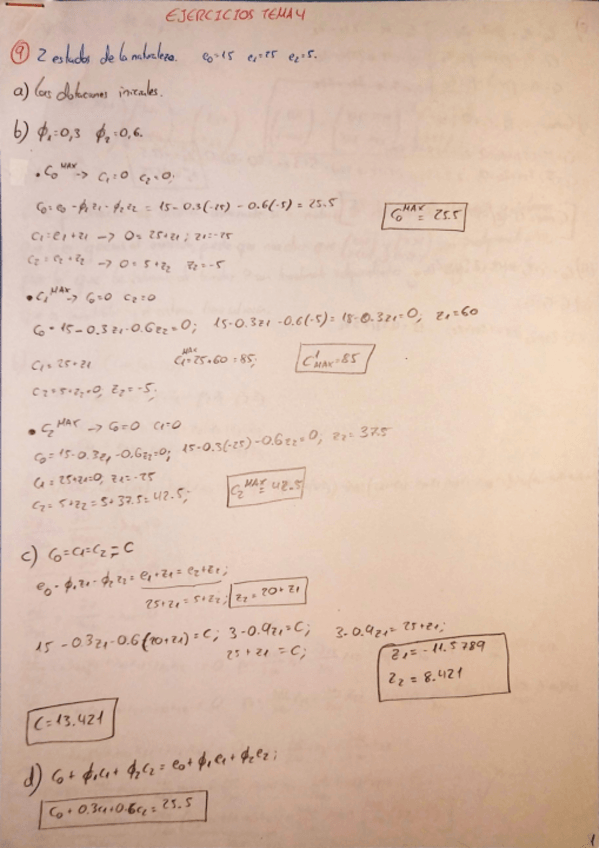 EJERCICIOS TEMA 4
9) 2 estados de la naturaleza. e₀=15 e₁=25 e₂=5.
a) Las dotaciones iniciales.
b) ϕ₁=0,3 ϕ₂=0,6.
• C₀ᴹᴬˣ → C₁=0 C₂=0;
C₀=e₀ - ϕ₁z₁ - ϕ₂z₂ = 15-0.3(-25) - 0.6(-5) = 25.5
C₀ᴹᴬˣ = 25.5
C₁=e₁+z₁ → 0=25+z₁; z₁=-25
C₂=e₂+z₂ → 0=5+z₂ z₂=-5
• C₁ᴹᴬˣ → C₀=0 C₂=0
C₀=15-0.3z₁-0.6z₂=0; 15-0.3z₁-0.6(-5)=18-0.3z₁=0; z₁=60
C₁=25+z₁ C₁ᴹᴬˣ=25+60=85; C¹ᴹᴬˣ=85
C₂=5+z₂=0, z₂=-5;
• C₂ᴹᴬˣ → C₀=0 C₁=0
C₀=15-0.3z₁-0.6z₂=0; 15-0.3(-25)-0.6z₂=0; z₂=37.5
C₁=25+z₁=0, z₁=-25
C₂=5+z₂=5+37.5=42.5; C₂ᴹᴬˣ=42.5
c) C₀=C₁=C₂=C
e₀-ϕ₁z₁-ϕ₂z₂=e₁+z₁=e₂+z₂;
25+z₁=5+z₂; z₂=20+z₁
15-0.3z₁-0.6(20+z₁)=C; 3-0.9z₁=C; 3-0.9z₁=25+z₁;
25+z₁=C;
z₁=-11.5789
z₂=8.421
C=13.421
d) C₀+ϕ₁C₁+ϕ₂C₂=e₀+ϕ₁e₁+ϕ₂e₂;
C₀+0.3C₁+0.6C₂=25.5
1